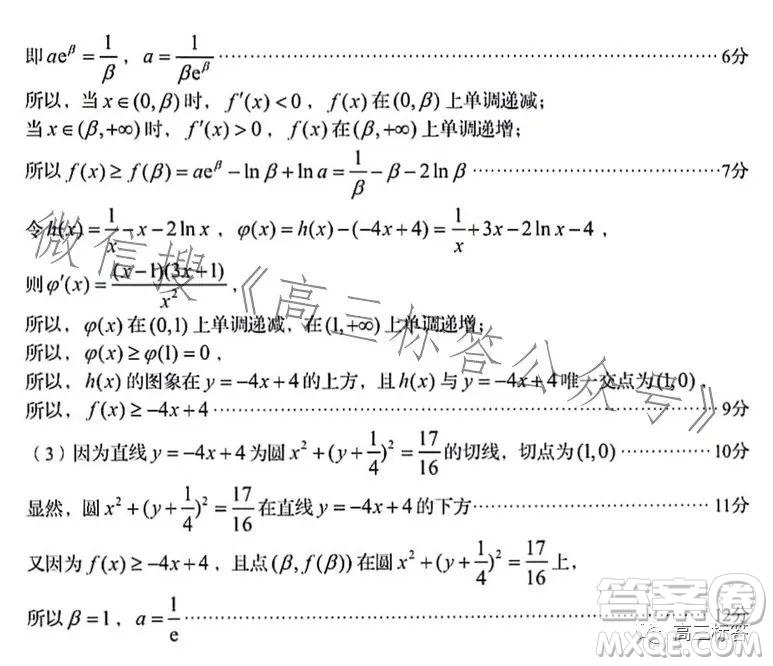 即 ae^β = 1/β , a = 1/(βe^β) ……………………………………………6分
所以, 当 x∈(0,β) 时, f′(x)<0 , f(x) 在 (0,β) 上单调递减;
当 x∈(β,+∞) 时, f′(x)>0 , f(x) 在 (β,+∞) 上单调递增;
所以 f(x) ≥ f(β) = ae^β − ln β + ln a = 1/β − β − 2 ln β ……………………7分
令 h(x) = 1/x − x − 2 ln x , φ(x) = h(x) − (−4x+4) = 1/x + 3x − 2 ln x − 4 ,
则 φ′(x) = (x−1)(3x+1)/x² ,
所以, φ(x) 在 (0,1) 上单调递减, 在 (1,+∞) 上单调递增;
所以, φ(x) ≥ φ(1) = 0 ,
所以, h(x) 的图象在 y = −4x+4 的上方, 且 h(x) 与 y = −4x+4 唯一交点为 (1,0) .
所以, f(x) ≥ −4x+4 ……………………………………………9分
(3) 因为直线 y = −4x+4 为圆 x² + (y+1/4)² = 17/16 的切线, 切点为 (1,0) …………10分
显然, 圆 x² + (y+1/4)² = 17/16 在直线 y = −4x+4 的下方……………………11分
又因为 f(x) ≥ −4x+4 , 且点 (β, f(β)) 在圆 x² + (y+1/4)² = 17/16 上,
所以 β = 1 , a = 1/e ……………………………………………12分
微信搜《高三标答公众号》
答案圈
MXQE.COM
高三标答